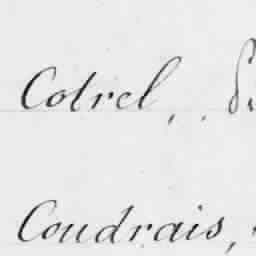 Cotrel,
Coudrais,